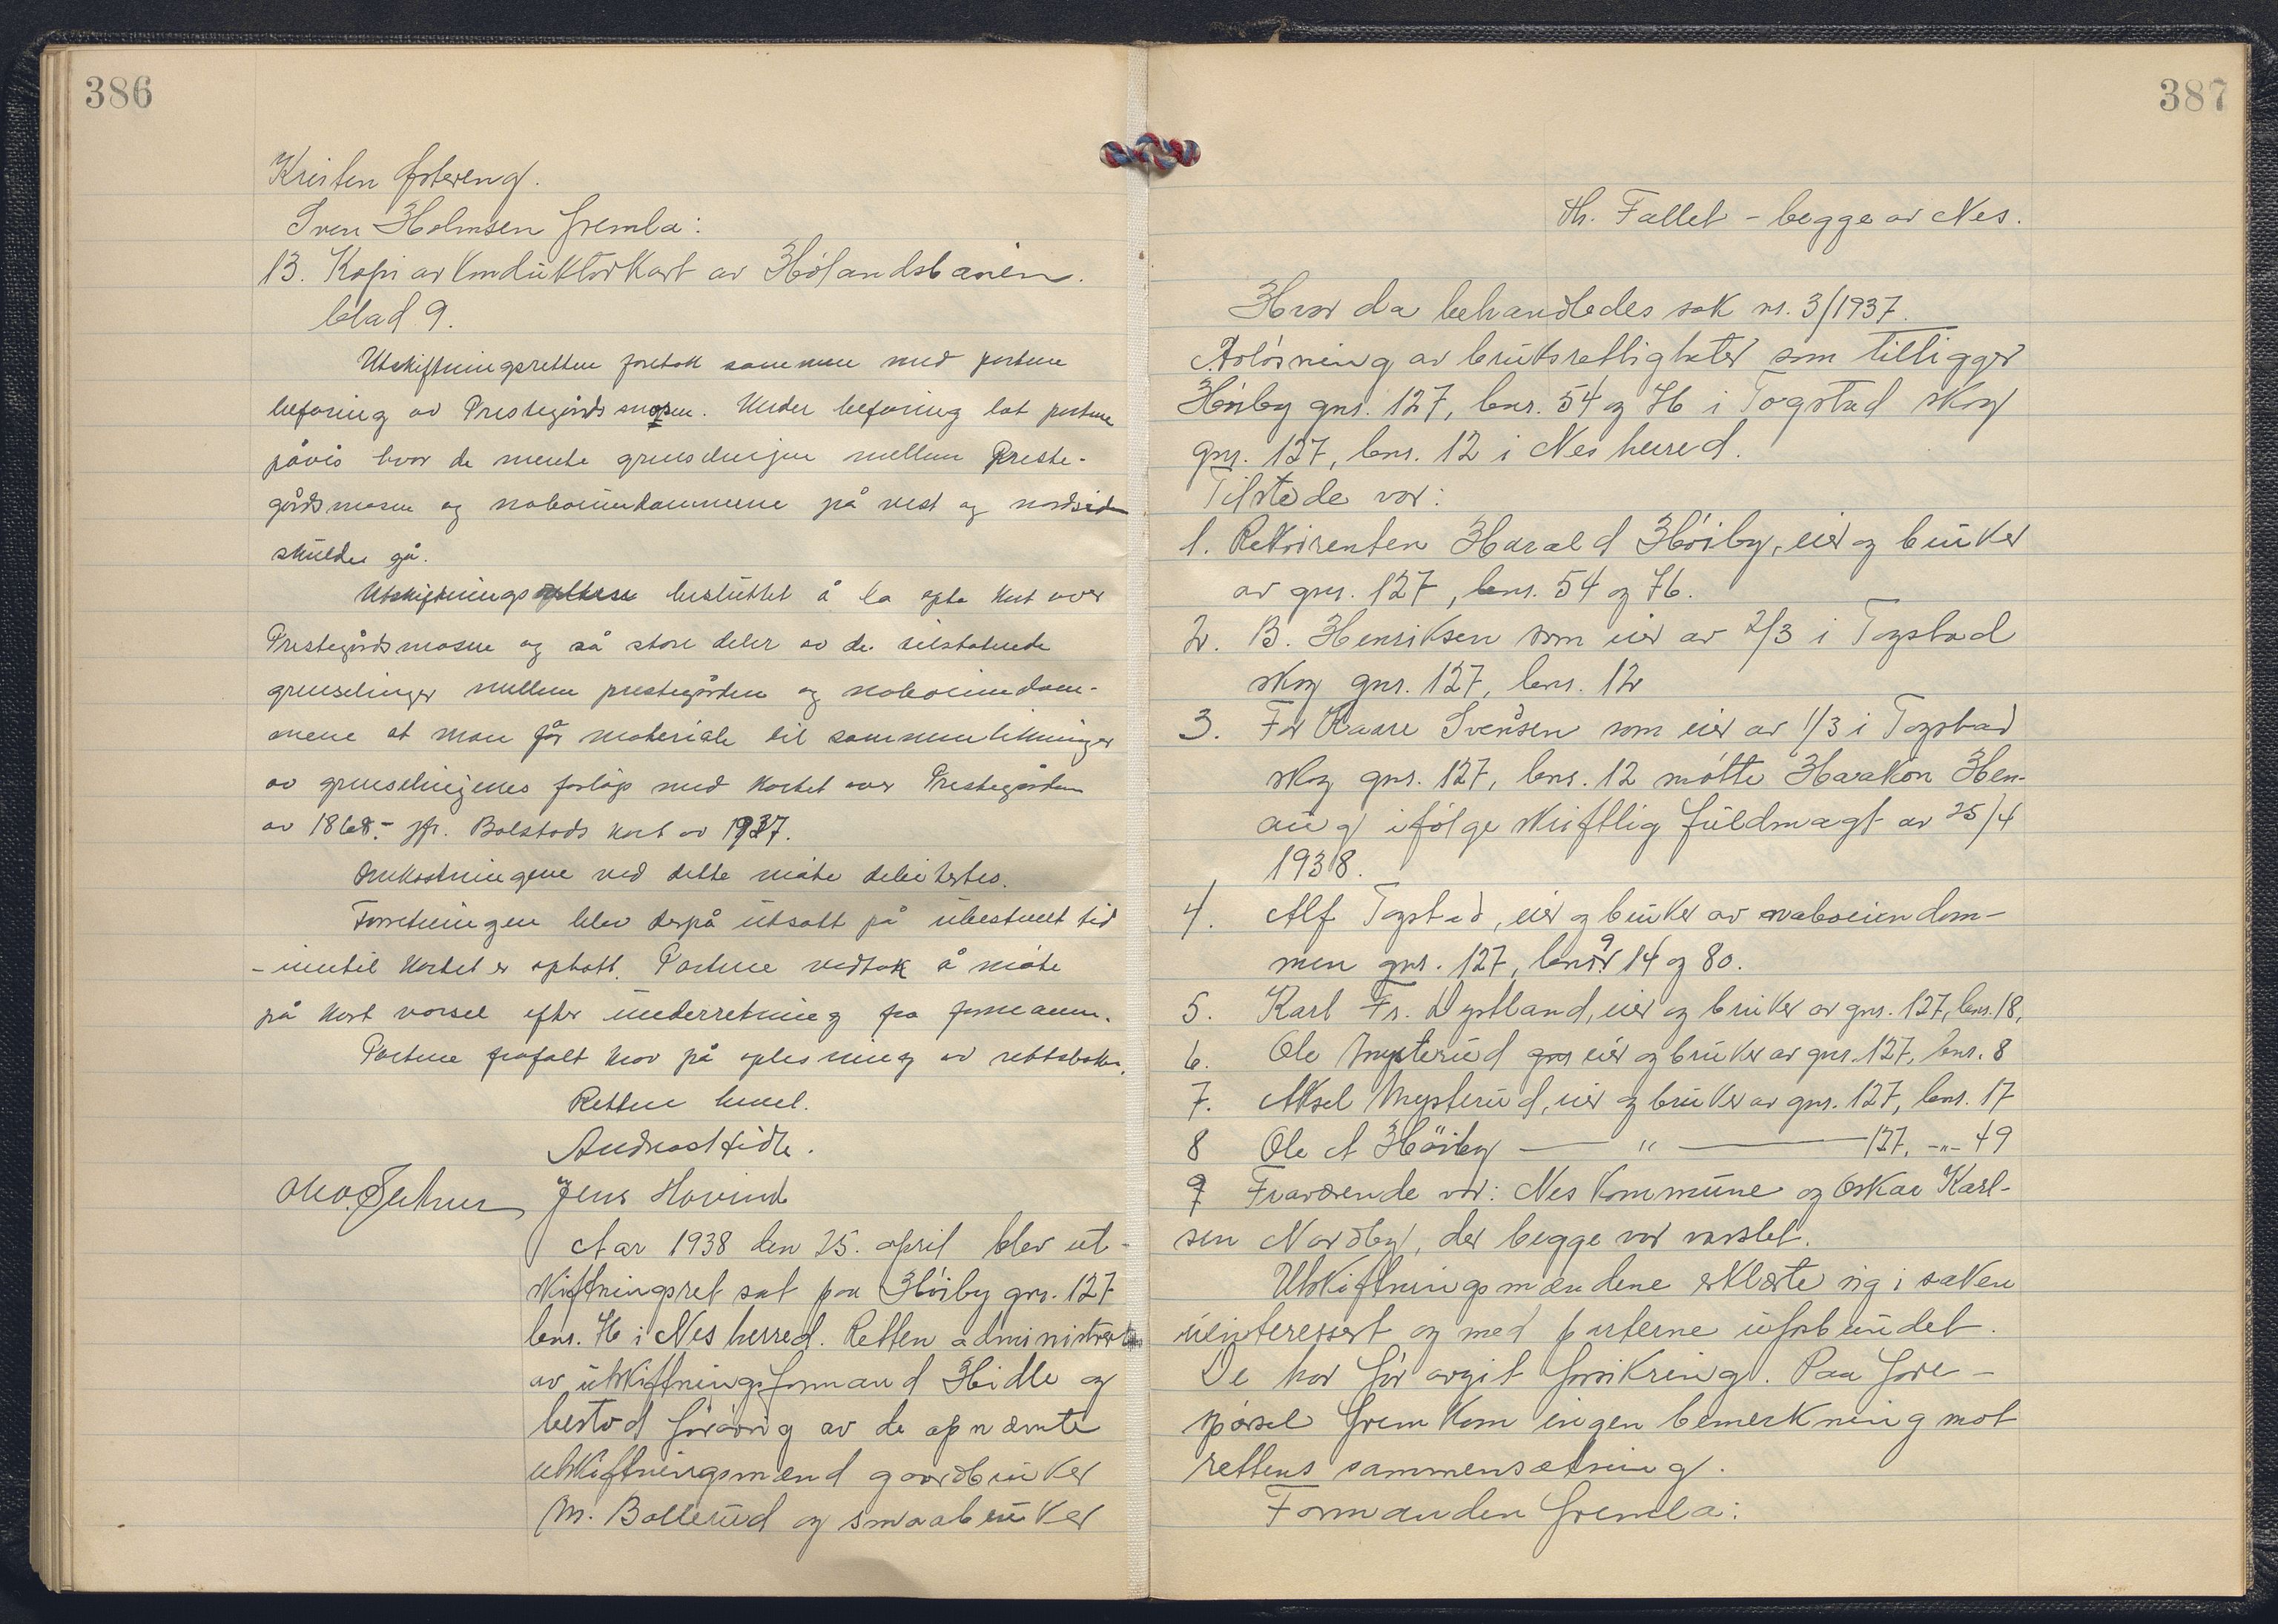 386
Kristen Østereng.
Sven Holmsen fremla:
13. Kopi av konduktørkart av Hølandsbanen.
blad 9.
Utskiftningsretten foretok sammen med partene
befaring av Prestegårdsmosen. Under befaring lot partene
påvis hvor de mente grenselinjen mellem Preste-
gårdsmosen og naboeiendommene på vest og nordsiden
skulde gå.
Utskiftningsretten besluttet å la opta kart over
Prestegårdsmosen og så store deler av de tilstøtende
grenselinjer mellem prestegården og naboeiendom-
mene at man får materiale til sammenlikninger
av grenselinjenes forløp med kartet over Prestegården
av 1868.- jfr. Bolstads kart av 1937.
Omkostningene ved dette møte debitertes.
Forretningen blev derpå utsatt på ubestemt tid
- inntil kartet er optatt. Partene vedtok å møte
på kort varsel efter underretning fra formann.
Partene frafalt krav på oplesning av rettsboken.
Retten hevet.
Andreas Hidle.
Jens Hovind
Aar 1938 den 25. april blev ut-
skiftningsret sat paa Høiby gnr. 127
bnr. 76 i Nes herred. Retten administrert
av utskiftningsformand Hidle og
bestod forøvrig av de opnævnte
utskiftningsmænd gaardbruker
M. Bollerud og smaabruker
387
Th. Fallet - begge av Nes.
Hvor da behandledes sak nr. 3/1937.
Avløsning av bruksrettigheter som tilligger
Høiby gnr. 127, bnr. 54 og 76 i Togstad skog
gnr. 127, bnr. 12 i Nes herred.
Tilstede var:
1. Rekvirenten Harald Høiby, eier og bruker
av gnr. 127, bnr. 54 og 76.
2. B. Henriksen som eier av 2/3 i Togstad
skog gnr. 127, bnr. 12
3. For Kaare Svensen som eier av 1/3 i Togstad
skog gnr. 127, bnr. 12 møtte Haakon Hen-
aug ifølge skriftlig fuldmagt av 25/4
1938.
4. Alf Togstad, eier og bruker av naboeiendom-
men gnr. 127, bnr. 9 14 og 80.
5. Karl Fr. Dystland, eier og bruker av gnr. 127, bnr. 18,
6. Ole Mysterud gnr eier og bruker av gnr. 127, bnr. 8
7. Aksel Mysterud, eier og bruker av gnr. 127, bnr. 17
8 Ole A Höiby — " — 127, -"- 49
9 Fraværende var: Nes kommune og Oskar Karl-
sen Nordby, der begge var varslet.
Utskiftningsmændene erklærte sig i saken
uinteressert og med parterne uforbundet.
De har før avgit forsikring. Paa fore-
spørsel fremkom ingen bemerkning mot
rettens sammensætning.
Formanden fremla: